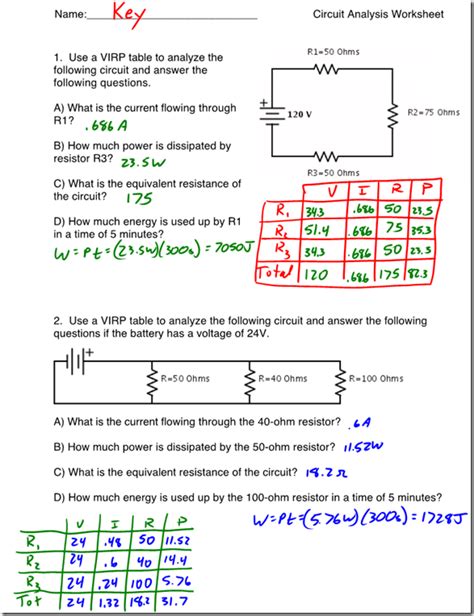 Name: Key
Circuit Analysis Worksheet
1. Use a VIRP table to analyze the
following circuit and answer the
following questions.
A) What is the current flowing through
R1? .686 A
B) How much power is dissipated by
resistor R3? 23.5W
C) What is the equivalent resistance of
the circuit? 175
D) How much energy is used up by R1
in a time of 5 minutes?
W=Pt=(23.5W)(300s)=7050J
R1=50 Ohms
120 V
R2=75 Ohms
R3=50 Ohms
V I R P
R1 34.3 .686 50 23.5
R2 51.4 .686 75 35.3
R3 34.3 .686 50 23.5
Total 120 .686 175 82.3
2. Use a VIRP table to analyze the following circuit and answer the following
questions if the battery has a voltage of 24V.
+
R=50 Ohms R=40 Ohms R=100 Ohms
A) What is the current flowing through the 40-ohm resistor? .6A
B) How much power is dissipated by the 50-ohm resistor? 11.52W
C) What is the equivalent resistance of the circuit? 18.2Ω
D) How much energy is used up by the 100-ohm resistor in a time of 5 minutes?
W=Pt=(5.76W)(300s)=1728J
V I R P
R1 24 .48 50 11.52
R2 24 .6 40 14.4
R3 24 .24 100 5.76
Tot 24 1.32 18.2 31.7